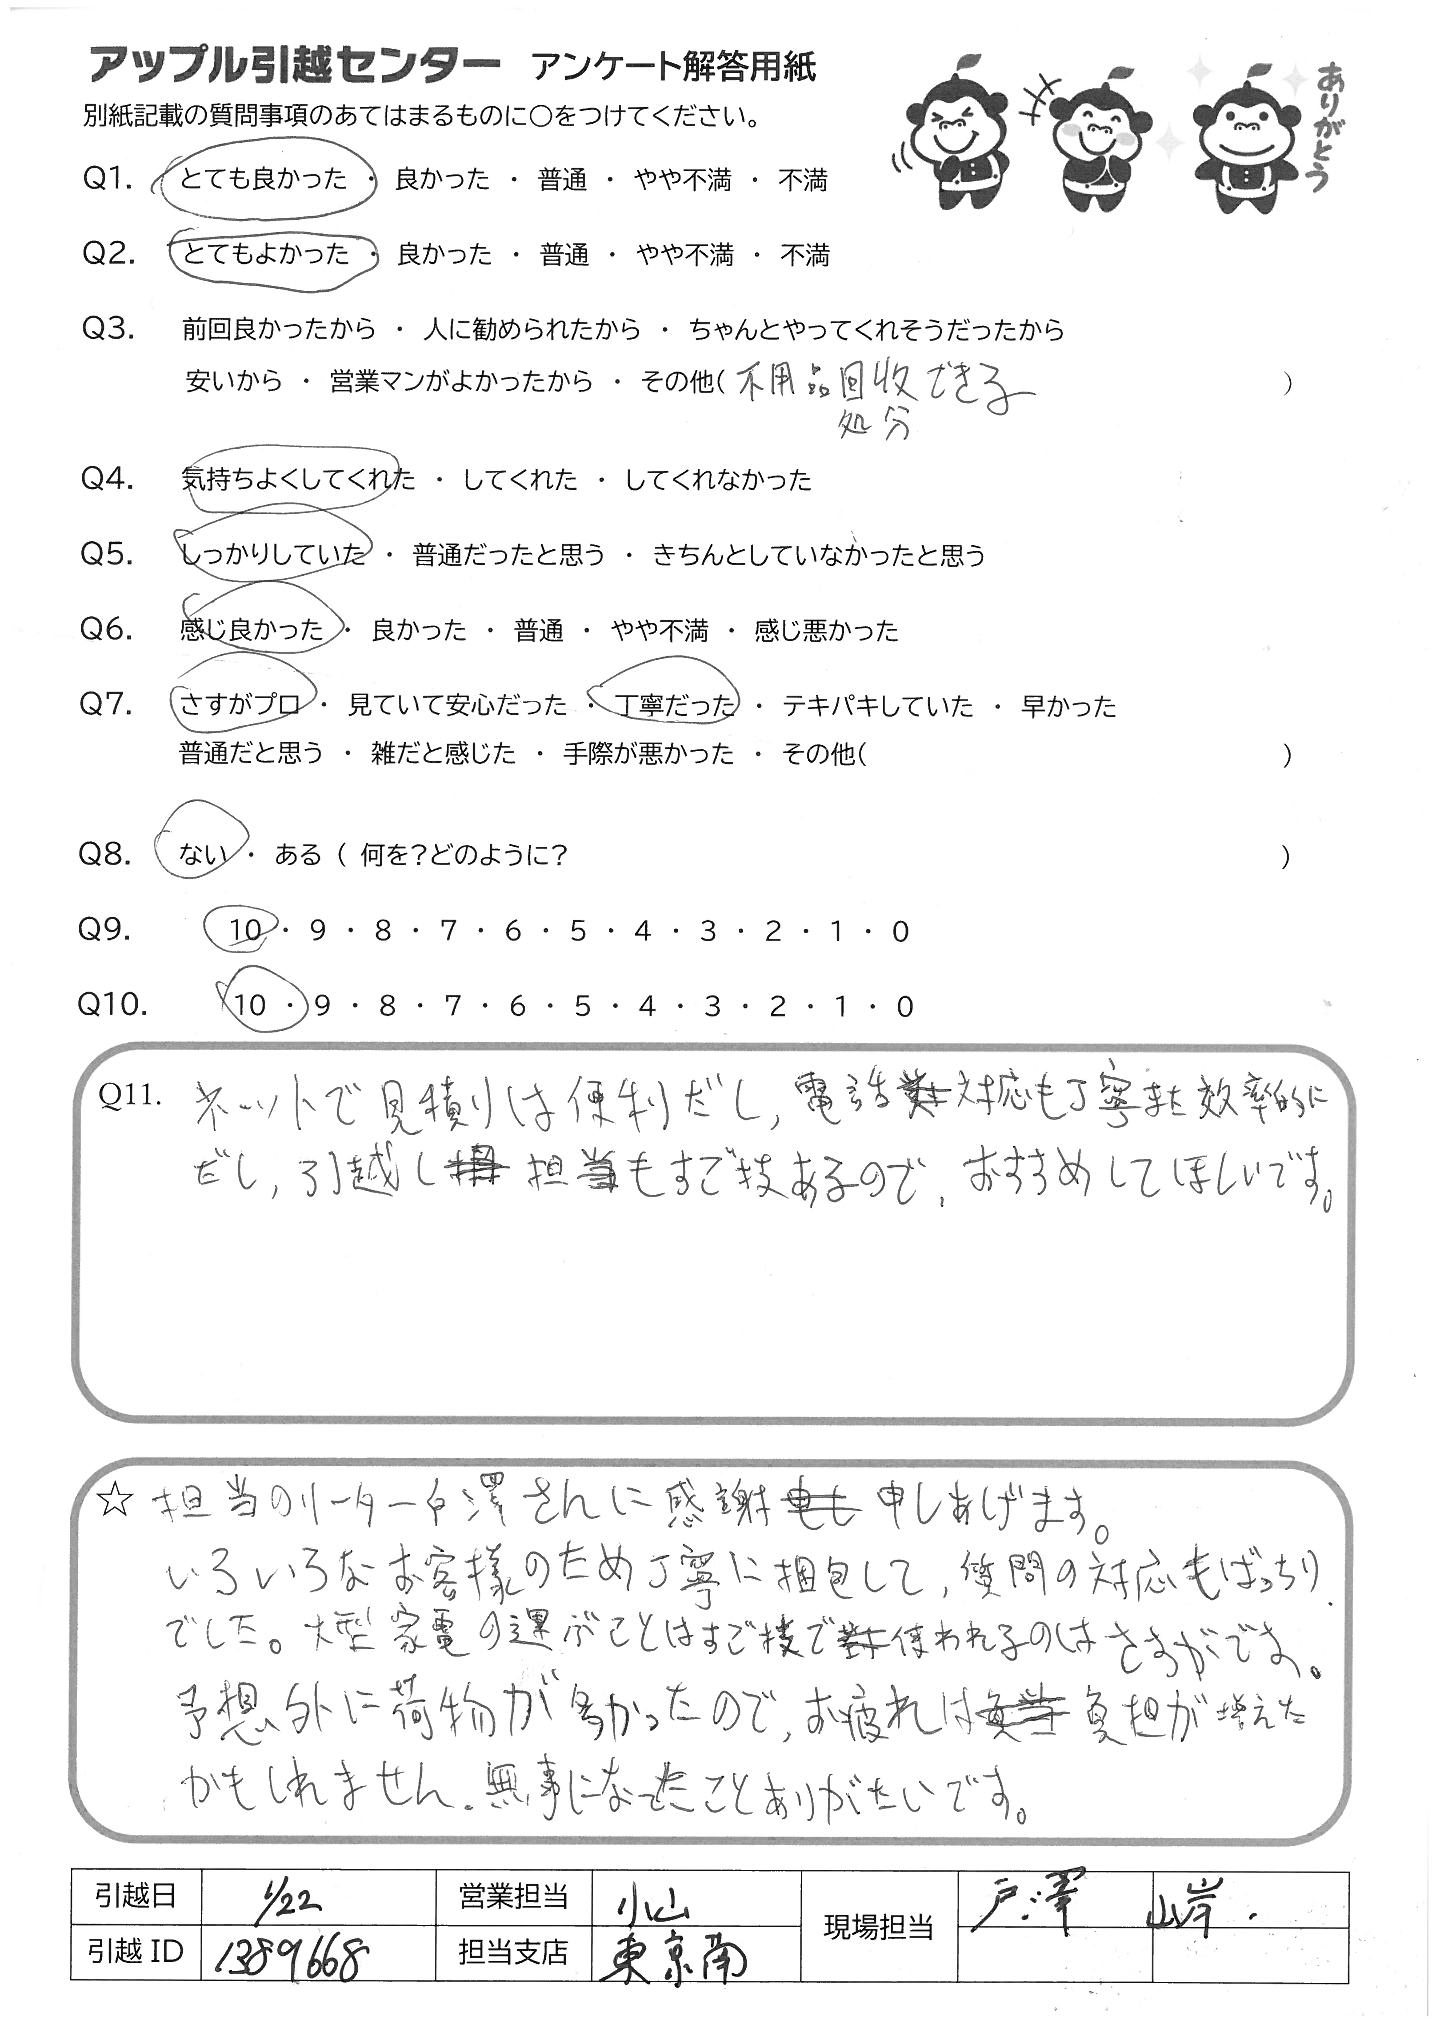 アップル引越センター アンケート解答用紙
ありがとう
別紙記載の質問事項のあてはまるものに○をつけてください。
Q1. とても良かった ・ 良かった ・ 普通 ・ やや不満 ・ 不満
Q2. とてもよかった ・ 良かった ・ 普通 ・ やや不満 ・ 不満
Q3. 前回良かったから ・ 人に勧められたから ・ ちゃんとやってくれそうだったから
安いから ・ 営業マンがよかったから ・ その他( 不用品回収できる )
処分
Q4. 気持ちよくしてくれた ・ してくれた ・ してくれなかった
Q5. しっかりしていた ・ 普通だったと思う ・ きちんとしていなかったと思う
Q6. 感じ良かった ・ 良かった ・ 普通 ・ やや不満 ・ 感じ悪かった
Q7. さすがプロ ・ 見ていて安心だった ・ 丁寧だった ・ テキパキしていた ・ 早かった
普通だと思う ・ 雑だと感じた ・ 手際が悪かった ・ その他( )
Q8. ない ・ ある ( 何を?どのように? )
Q9. 10 ・ 9 ・ 8 ・ 7 ・ 6 ・ 5 ・ 4 ・ 3 ・ 2 ・ 1 ・ 0
Q10. 10 ・ 9 ・ 8 ・ 7 ・ 6 ・ 5 ・ 4 ・ 3 ・ 2 ・ 1 ・ 0
Q11. ネットで見積りは便利だし、電話対応も丁寧また効率的に
だし、引越し担当もすご技あるので、おすすめしてほしいです。
☆ 担当のリーダー戸澤さんに感謝申しあげます。
いろいろなお客様のため丁寧に梱包して、質問の対応もばっちり
でした。大型家電の運ぶことはすご技で使われるのはさすがです。
予想外に荷物が多かったので、お疲れは負担が増えた
かもしれません。無事になったことありがたいです。
引越日 1/22 営業担当 小山 現場担当 戸澤 山岸.
引越 ID 1389668 担当支店 東京南